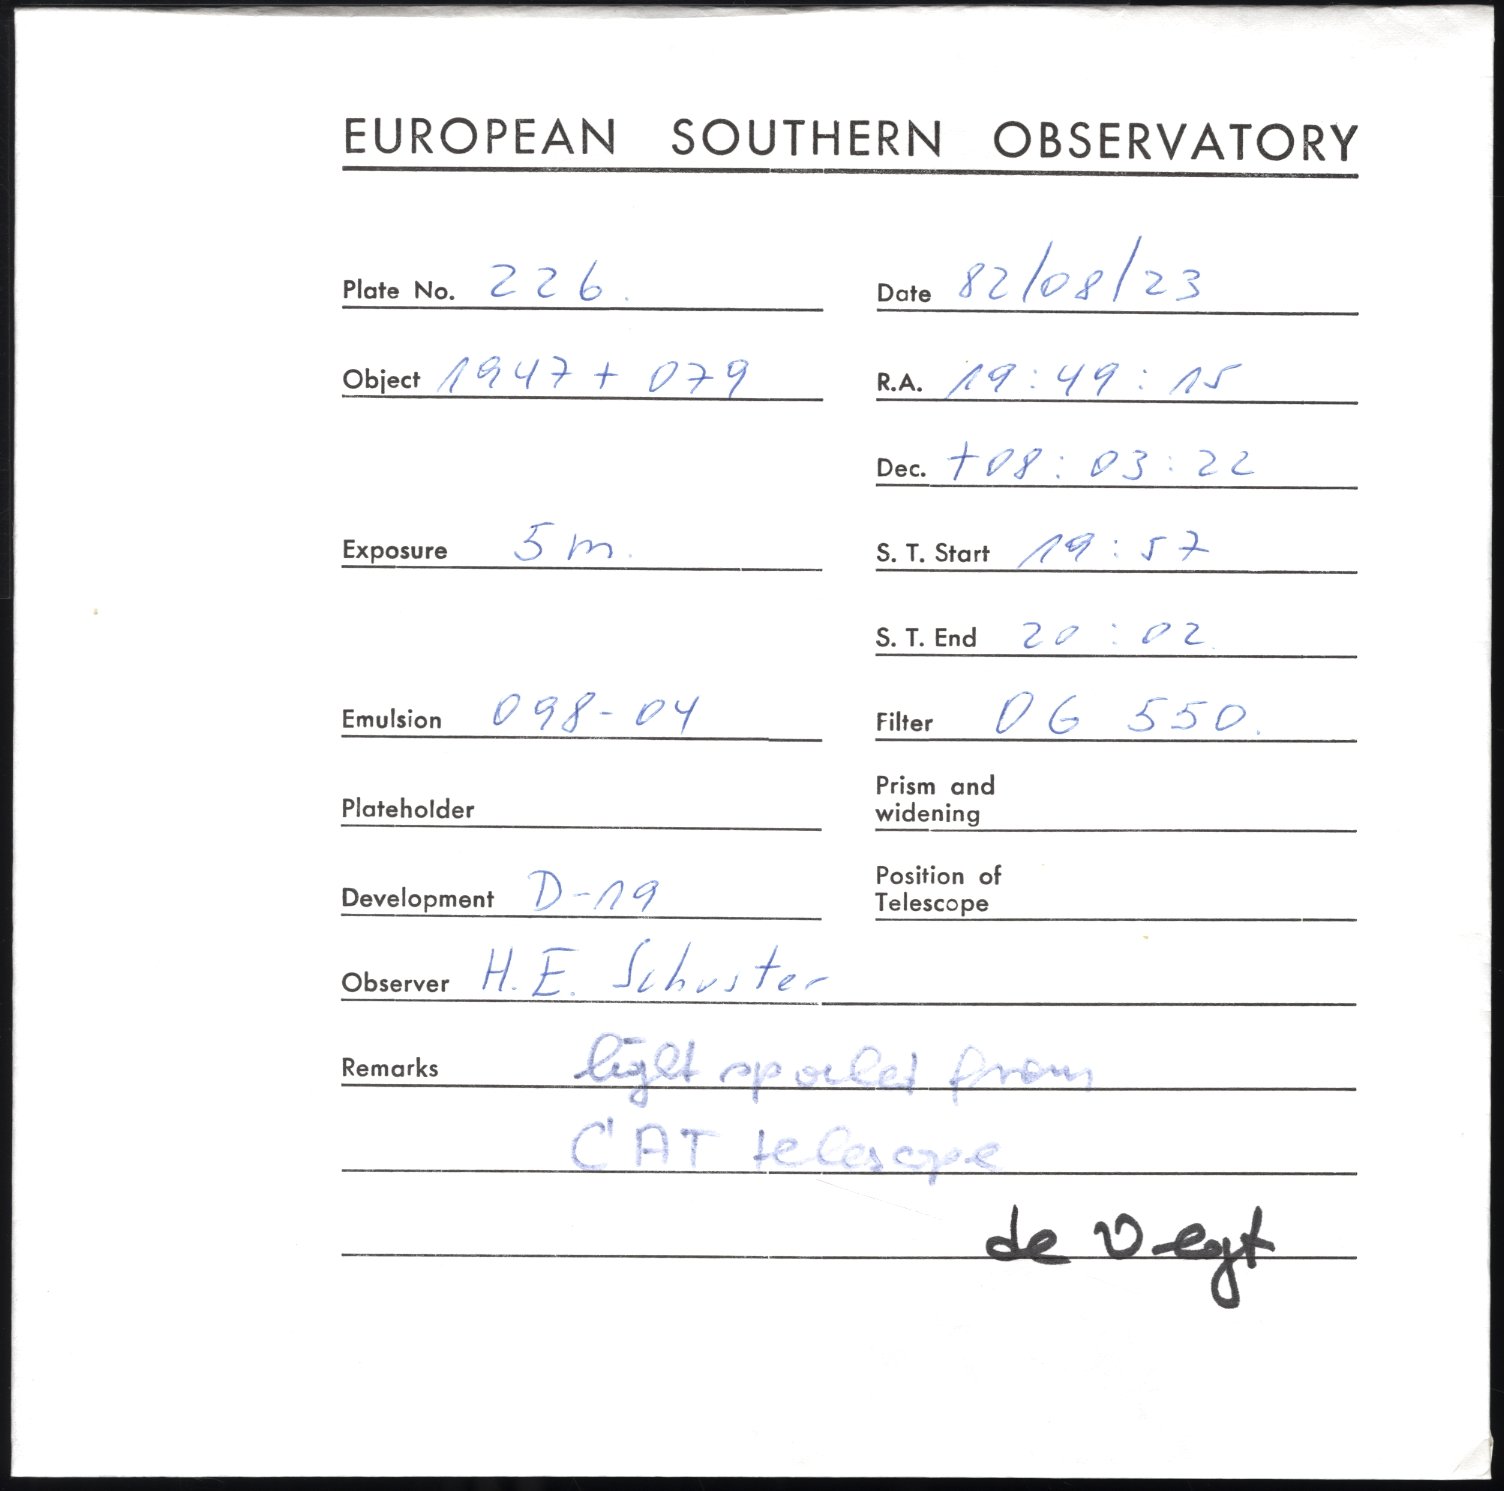 EUROPEAN SOUTHERN OBSERVATORY
Plate No. 226. Date 82/08/23
Object 1947+079 R.A. 19:49:15
Dec. +08:03:22
Exposure 5m. S. T. Start 19:57
S. T. End 20:02
Emulsion 098-04 Filter OG 550.
Plateholder Prism and widening
Development D-19 Position of Telescope
Observer H.E. Schuster
Remarks light spoiled from
CAT telescope
de Vegt